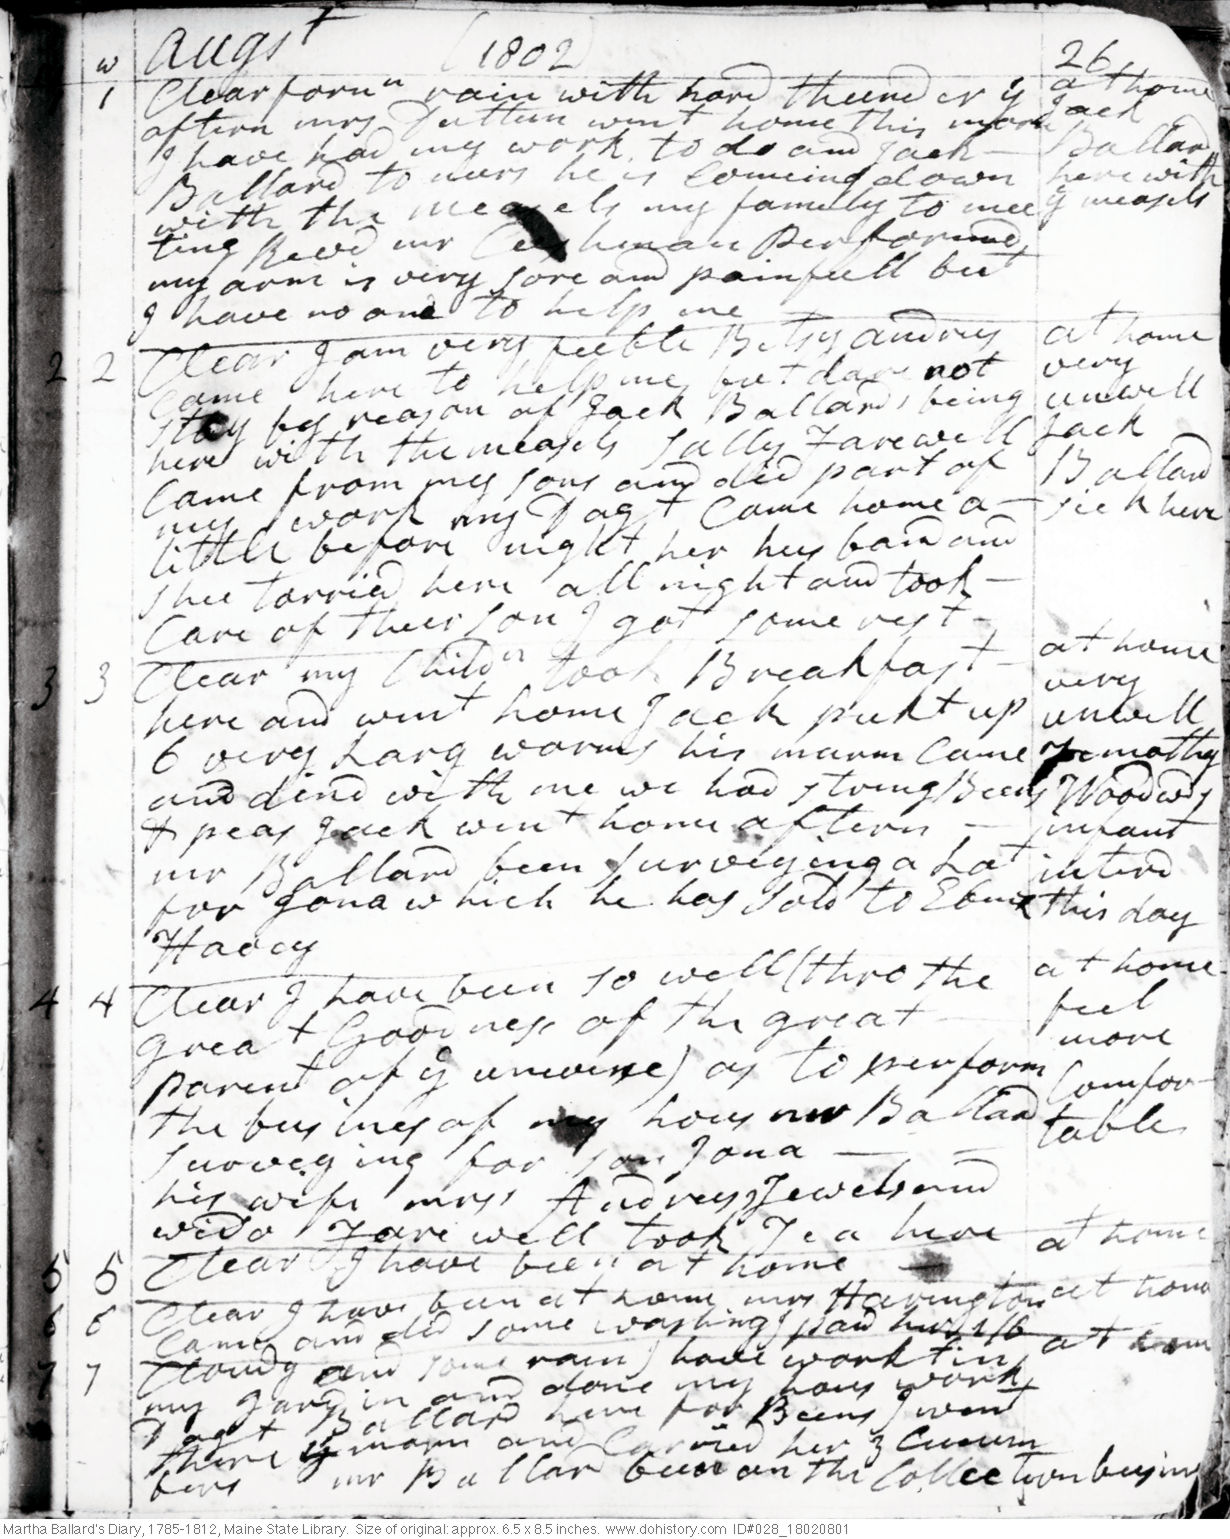 w Augst (1802) 26
1 Clear forn n rain with hard thunder in ye at home
aftern mrs Dutten went home this morn Jack
I have had my work to do and Jack – Ballard
Ballard to nurs he is Comeing down here with
with the measels my family to mee ye measels
ting Revd mr Cushman Performed
my arm is very sore and painfull but
I have no one to help me
2 2 Clear I am very feeble Betsy andrus at home
Came here to help me but dare not very
stay by reason of Jack Ballards being unwell
here with the measels Sally Farewell Jack
Came from my sons and did part of Ballard
my work my Dagt Came home a – sick here
little before night her husband and
shee tarried here all night and took –
Care of their son I got some rest –
3 3 Clear my Childn took Breakfast – at home
here and went home Jack pukt up very
6 very Larg worms his marm Came unwell
and dind with me we had string Beens Timothy Woodwds
& peas Jack went home aftern – infant
mr Ballard been surveying a Lot interd
for Jona which he has sold to Ebnr this day
Hovey
4 4 Clear I have been so well (thro the at home
great Goodness of the great – feel
Parent of ye universe) as to perform more
the busines of my hous mr Ballard Comfor–
surveying for son Jona – – table
his wife mrss Andrus, Jewel and
wido Farewell took Tea here
5 5 Clear I have been at home – at home
6 6 Clear I have been at home mrs Harington at home
Came and did some washing I paid her 1/6
7 7 Cloudy and some rain I have workt in at home
my gardin and done my hous work
Dagt Ballard here for Beens I went
there ye morn and Carried her 3 Cucum
bers mr Ballard been on the Collection busines
Martha Ballard's Diary, 1785-1812, Maine State Library. Size of original: approx. 6.5 x 8.5 inches. www.dohistory.com ID#028_18020801